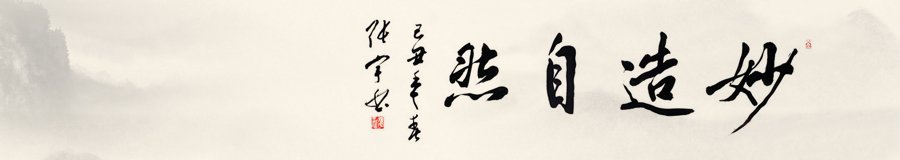 妙造自然
己丑年春
张宇书